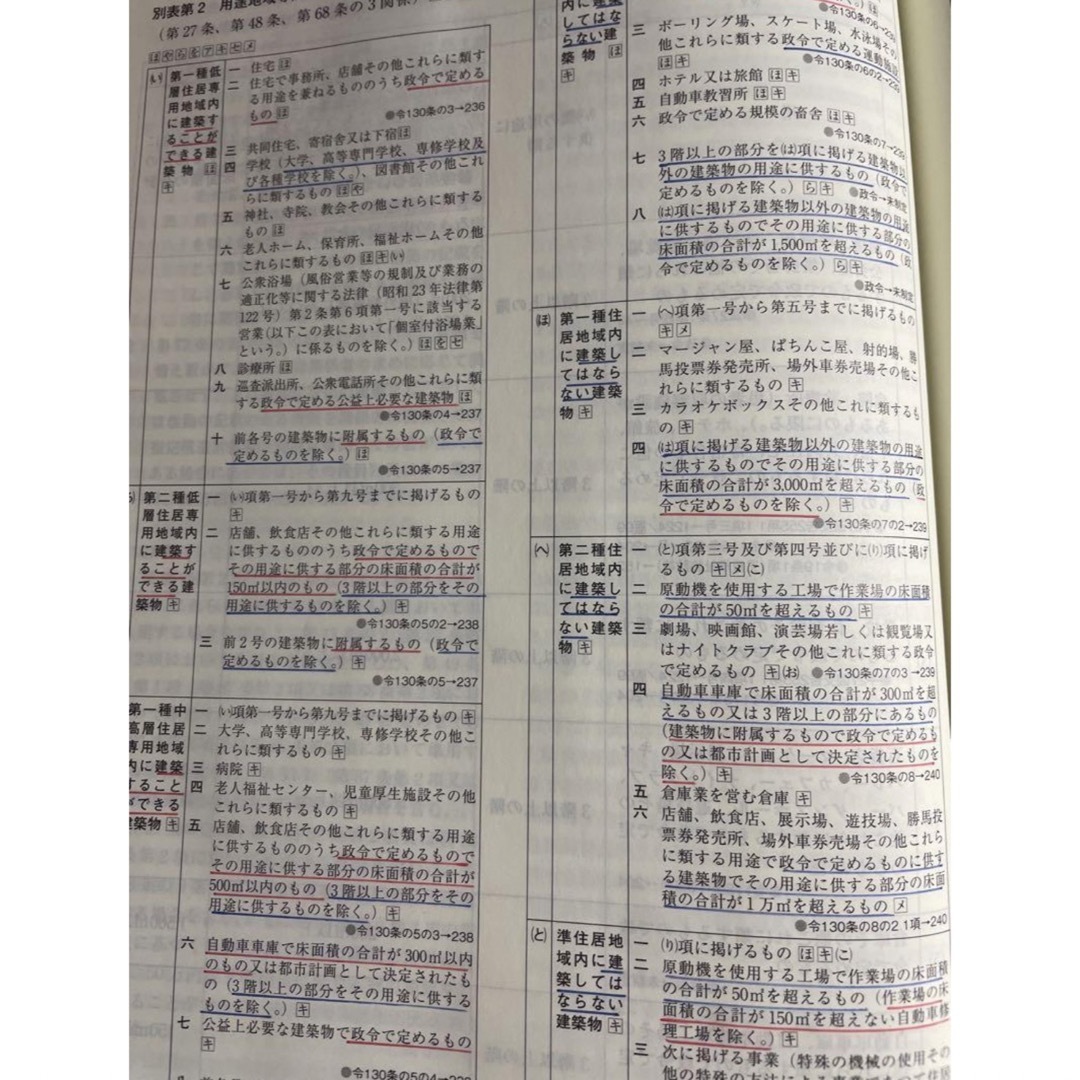 別表第2 用途地域等
(第27条、第48条、第68条の3関係)
ほやらをアキセメ
(い) 第一種低層住居専用地域内に建築することができる建築物 ほ キ
一 住宅 ほ
二 住宅で事務所、店舗その他これらに類す
る用途を兼ねるもののうち政令で定める
もの ほ
●令130条の3→236
三 共同住宅、寄宿舎又は下宿 ほ
四 学校(大学、高等専門学校、専修学校及
び各種学校を除く。)、図書館その他これ
らに類するもの ほ や
五 神社、寺院、教会その他これらに類する
もの ほ
六 老人ホーム、保育所、福祉ホームその他
これらに類するもの ほ キ (い)
七 公衆浴場(風俗営業等の規制及び業務の
適正化等に関する法律(昭和23年法律第
122号)第2条第6項第一号に該当する
営業(以下この表において「個室付浴場業」
という。)に係るものを除く。) ほ を 七
八 診療所 ほ
九 巡査派出所、公衆電話所その他これらに類
する政令で定める公益上必要な建築物 ほ
●令130条の4→237
十 前各号の建築物に附属するもの(政令で
定めるものを除く。) ほ
●令130条の5→237
第二種低層住居専用地域内に建築することができる建築物 キ
一 (い)項第一号から第九号までに掲げるもの
キ
二 店舗、飲食店その他これらに類する用途
に供するもののうち政令で定めるもので
その用途に供する部分の床面積の合計が
150㎡以内のもの(3階以上の部分をその
用途に供するものを除く。) キ
●令130条の5の2→238
三 前2号の建築物に附属するもの(政令で
定めるものを除く。) キ
●令130条の5→237
第一種中高層住居専用地域内に建築することができる建築物 キ
一 (い)項第一号から第九号までに掲げるもの キ
二 大学、高等専門学校、専修学校その他こ
れらに類するもの キ
三 病院 キ
四 老人福祉センター、児童厚生施設その他
これらに類するもの キ
五 店舗、飲食店その他これらに類する用途
に供するもののうち政令で定めるもので
その用途に供する部分の床面積の合計が
500㎡以内のもの(3階以上の部分をその
用途に供するものを除く。) キ
●令130条の5の3→238
六 自動車車庫で床面積の合計が300㎡以内
のもの又は都市計画として決定されたも
の(3階以上の部分をその用途に供する
ものを除く。) キ
七 公益上必要な建築物で政令で定めるもの
キ
●令130条の5の4→238
内に建築してはならない建築物 ほ キ
●令130条の6→
三 ボーリング場、スケート場、水泳場その
他これらに類する政令で定める運動施設
ほ キ
●令130条の6の2→239
四 ホテル又は旅館 ほ キ
五 自動車教習所 ほ キ
六 政令で定める規模の畜舎 ほ キ
●令130条の7→239
七 3階以上の部分を(は)項に掲げる建築物以
外の建築物の用途に供するもの(政令で
定めるものを除く。) ら キ ●政令→未制定
八 (は)項に掲げる建築物以外の建築物の用途
に供するものでその用途に供する部分の
床面積の合計が1,500㎡を超えるもの(政
令で定めるものを除く。) ら キ
●政令→未制定
(ほ) 第一種住居地域内に建築してはならない建築物 キ
一 (へ)項第一号から第五号までに掲げるもの
キ メ
二 マージャン屋、ぱちんこ屋、射的場、勝
馬投票券発売所、場外車券売場その他こ
れらに類するもの キ
三 カラオケボックスその他これに類するも
の キ
四 (は)項に掲げる建築物以外の建築物の用途
に供するものでその用途に供する部分の
床面積の合計が3,000㎡を超えるもの(政
令で定めるものを除く。) キ
●令130条の7の2→239
(へ) 第二種住居地域内に建築してはならない建築物 キ
一 (と)項第三号及び第四号並びに(り)項に掲げ
るもの キ メ (に)
二 原動機を使用する工場で作業場の床面積
の合計が50㎡を超えるもの キ
三 劇場、映画館、演芸場若しくは観覧場又
はナイトクラブその他これに類する政令
で定めるもの キ (お) ●令130条の7の3→239
四 自動車車庫で床面積の合計が300㎡を超
えるもの又は3階以上の部分にあるもの
(建築物に附属するもので政令で定めるも
の又は都市計画として決定されたものを
除く。) キ
●令130条の8→240
五 倉庫業を営む倉庫 キ
六 店舗、飲食店、展示場、遊技場、勝馬投
票券発売所、場外車券売場その他これら
に類する用途で政令で定めるものに供す
る建築物でその用途に供する部分の床面
積の合計が1万㎡を超えるもの メ
●令130条の8の2 1項→240
(と) 準住居地域内に建築してはならない建築物 キ
一 (り)項に掲げるもの ほ キ (に)
二 原動機を使用する工場で作業場の床面積
の合計が50㎡を超えるもの(作業場の床
面積の合計が150㎡を超えない自動車修
理工場を除く。) キ
三 次に掲げる事業(特殊の機械の使用その
他の特殊の方法による事業であつて住居